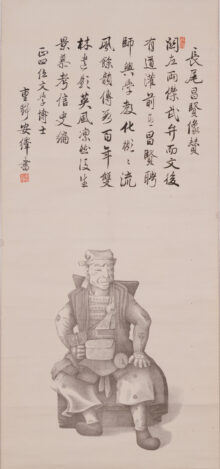 長尾昌賢像賛
関左両傑武弁而文後
有道灌前昌賢聘
師興学教化術々流
風餘韻傳百年雙
林考影英風凛然後生
景慕考信史編
正四位文学博士
重野安繹書